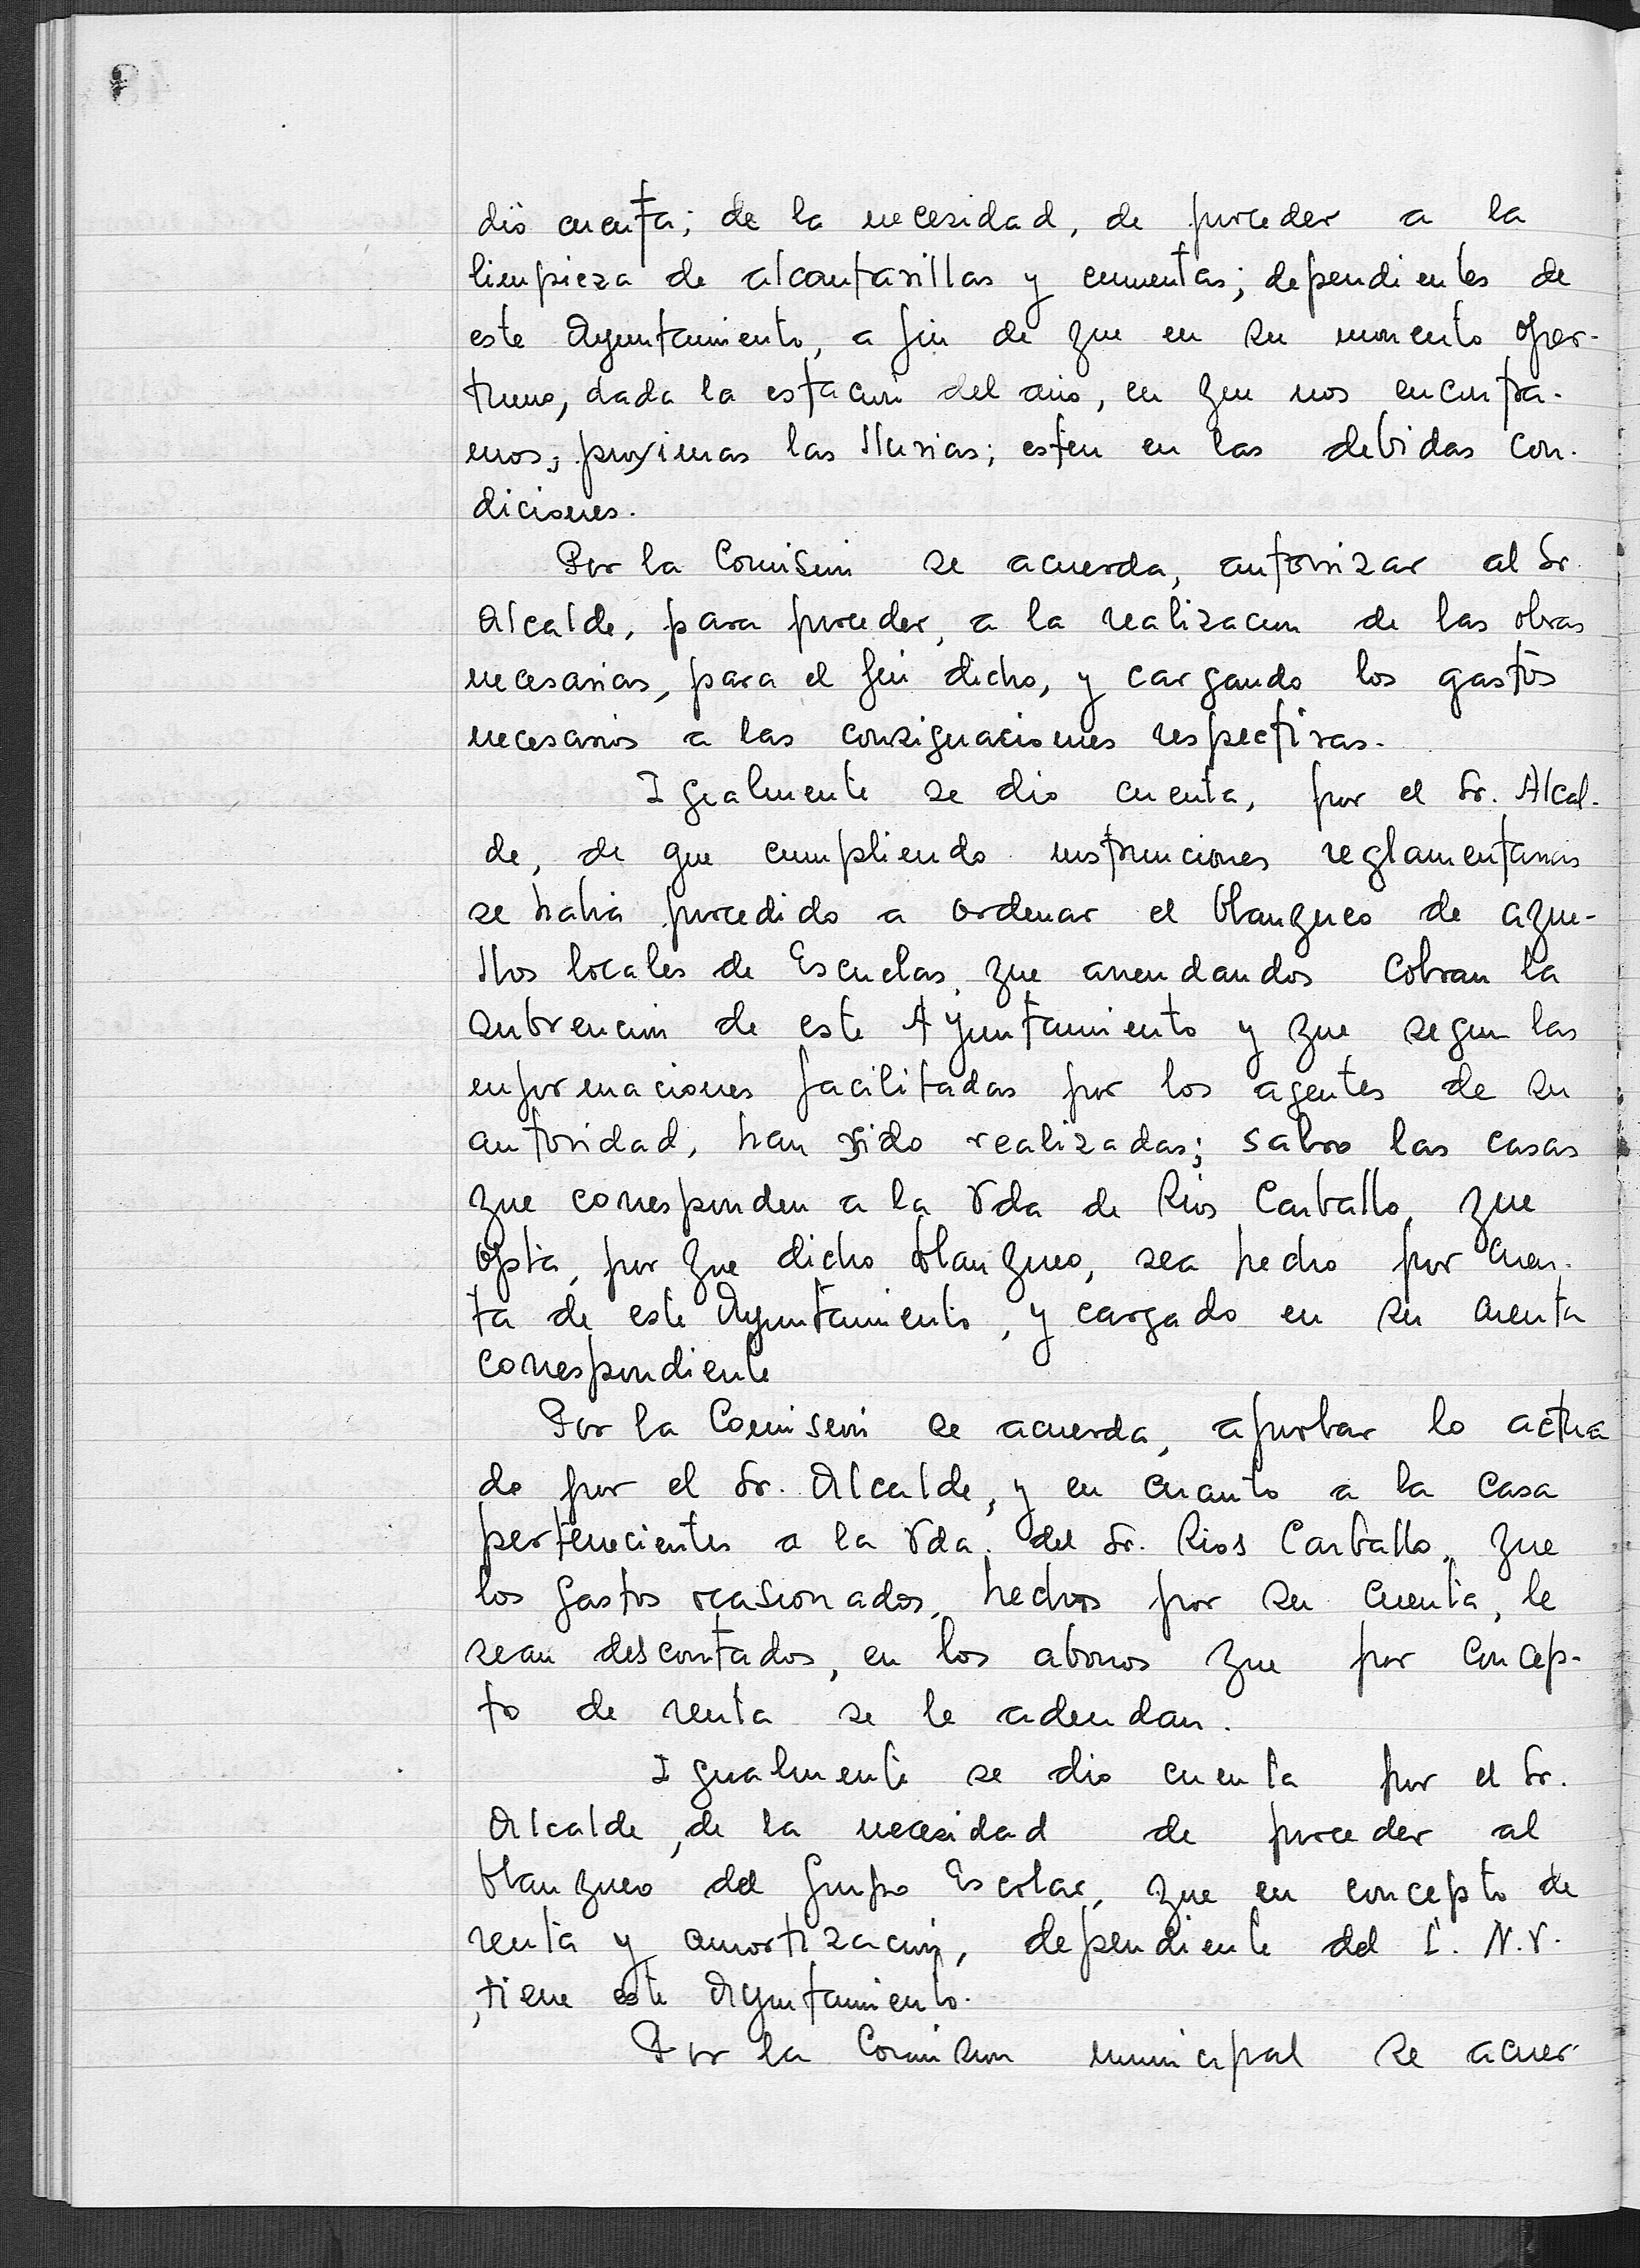 dió cuenta; de la necesidad, de proceder a la
limpieza de alcantarillas y cunentas; dependientes de
este Ayuntamiento, a fin de que en su momento opor-
tuno, dada la estacion del año, en que nos encontra-
mos; proximas las lluvias; esten en las debidas con-
diciones.
Por la Comision se acuerda, autorizar al Sr
Alcalde, para proceder, a la realizacion de las obras
necesarias, para el fin dicho, y cargando los gastos
necesarios a las consignaciones respectivas.
Igualmente se dio cuenta, por el Sr. Alcal-
de, de que cumpliendo instrunciones reglamentarias
se habia procedido a ordenar el blanqueo de aque-
llos locales de Escuelas, que arrendandos cobran la
subvencion de este Ayuntamiento y que segun las
informaciones facilitadas por los agentes de su
autoridad, han sido realizadas; salvo las casas
que corresponden a la Vda de Rios Carballo, que
opta, por que dicho blanqueo, sea hecho por cuen-
ta de este Ayuntamiento, y cargado en su cuenta
correspondiente
Por la Comision se acuerda, aprobar lo actua
do por el Sr. Alcalde, y en cuanto a la casa
pertenecientes a la Vda. del Sr. Rios Carballo, que
los gastos ocasionados, hechos por su cuenta, le
sean descontados, en los abonos que por concep-
to de renta se le adeudan.
Igualmente se dio cuenta por el Sr.
Alcalde, de la necesidad de proceder al
blanqueo del Grupo Escolar, que en concepto de
renta y amortizacion, dependiente del I. N. V.
, tiene este Ayuntamiento.
Por la Comision municipal se acuer-